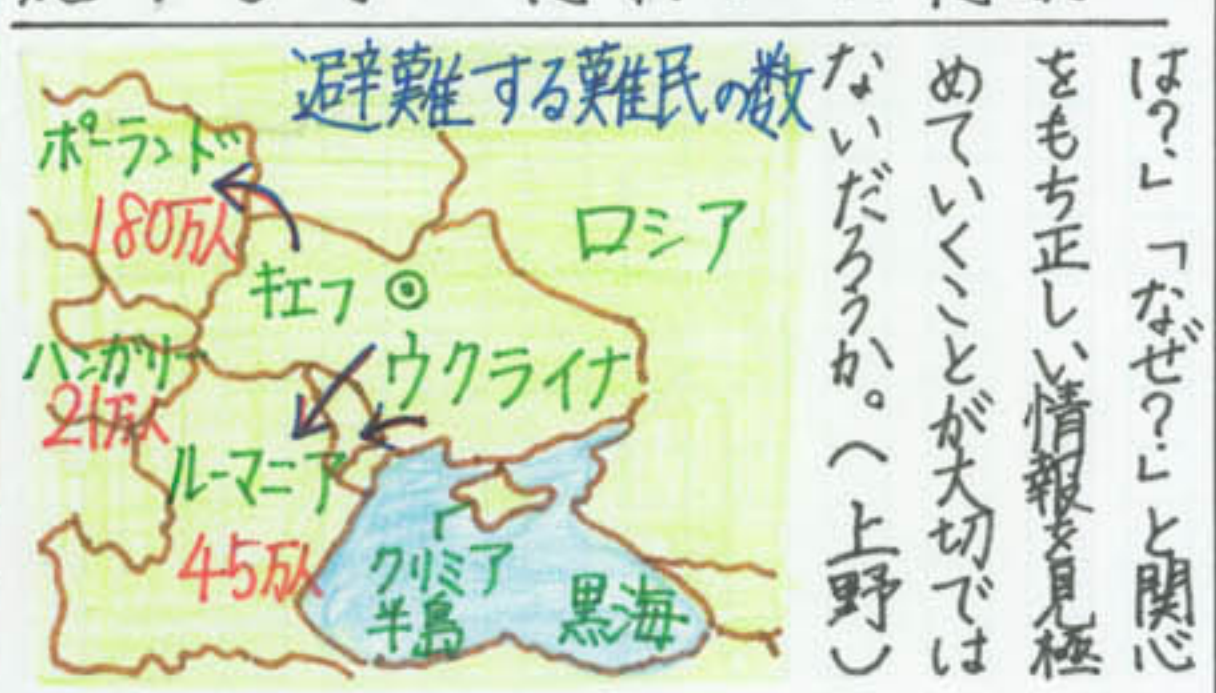 は?」「なぜ?」と関心
をもち正しい情報を見極
めていくことが大切では
ないだろうか。(上野)
避難する難民の数
ポーランド
180万人
ロシア
キエフ
ウクライナ
ハンガリー
21万人
ルーマニア
45万人
クリミア
半島
黒海